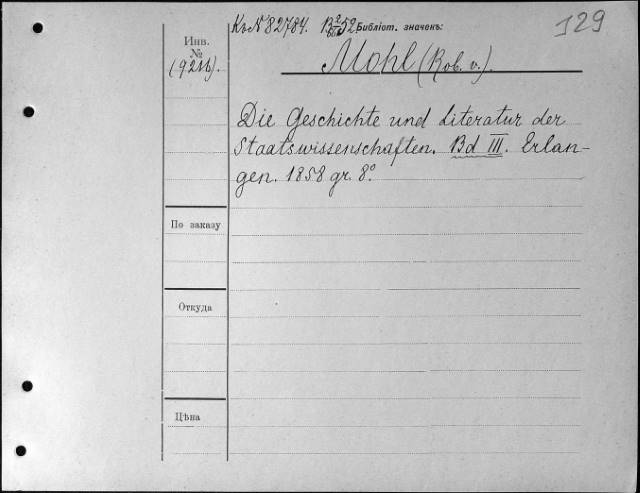 К№ 82784. Библіот. значекъ: 129
Инв. №
(9216).
Mohl (Rob. v.).
Die Geschichte und Literatur der
Staatswissenschaften. Bd III. Erlan-
gen. 1858 gr. 8°.
По заказу
Откуда
Цѣна